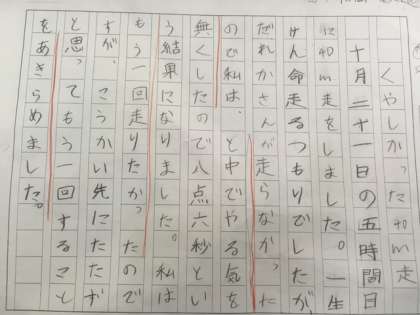 くやしかった40m走
十月二十一日の五時間目
に40m走をしました。一生
けん命走るつもりでしたが、
だれかさんが走らなかった
ので私は、と中でやる気を
無くしたので八点六秒とい
う結果になりました。私は
もう一回走りたかったので
すが、こうかい先にたたず
と思ってもう一回すること
をあきらめました。